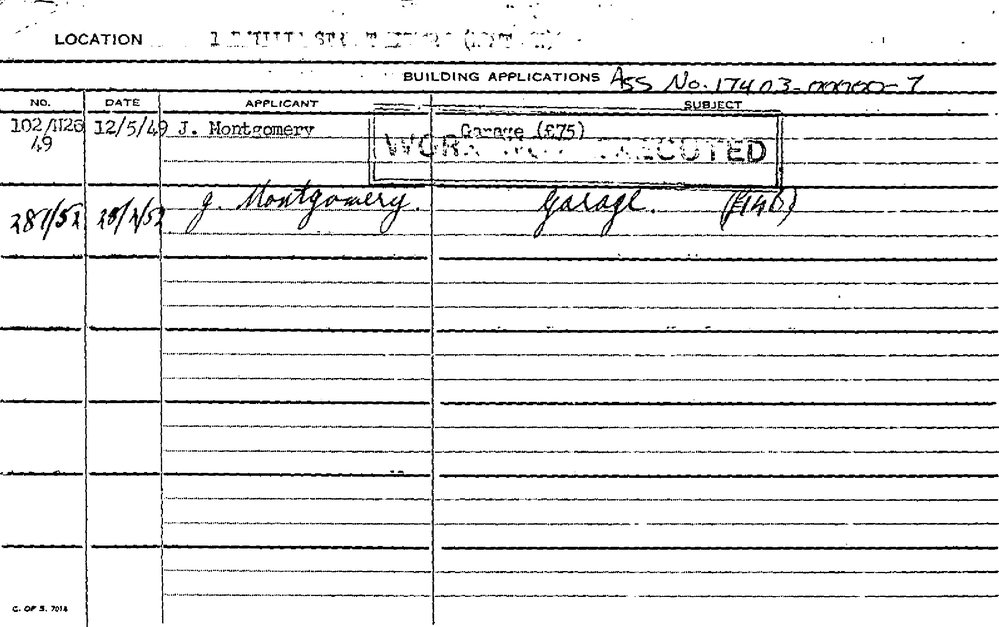 LOCATION 1
BUILDING APPLICATIONS Ass No. 17403-00000-7
NO. DATE APPLICANT SUBJECT
102/1126 12/5/49 J. Montgomery Garage (£75)
49
WORK NOT EXECUTED
281/52 J. Montgomery. Garage. (£140)
C. OF S. 7018